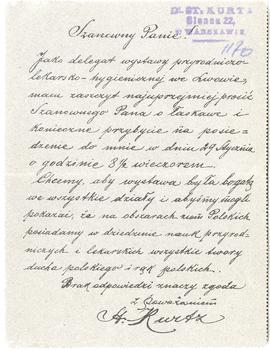 Dr. ST. KURTZ
Słenna 22,
w WARSZAWIE
11/10
Szanowny Panie!
Jako delegat wystawy przyrodniczo-
lekarsko-hygienicznej we Lwowie,
mam zaszczyt najuprzejmiej prosić
Szanownego Pana o łaskawe i
konieczne przybycie na posie-
dzenie do mnie w dniu 29 Stycznia
o godzinie 8½ wieczorem.
Chcemy, aby wystawa była bogatą
we wszystkie działy i abyśmy mogli
pokazać, że na obszarach ziem Polskich
posiadamy w dziedzinie nauk przyrod-
niczych i lekarskich wszystkie twory
ducha polskiego i rąk polskich.
Brak odpowiedzi znaczy zgoda
z poważaniem
St. Kurtz